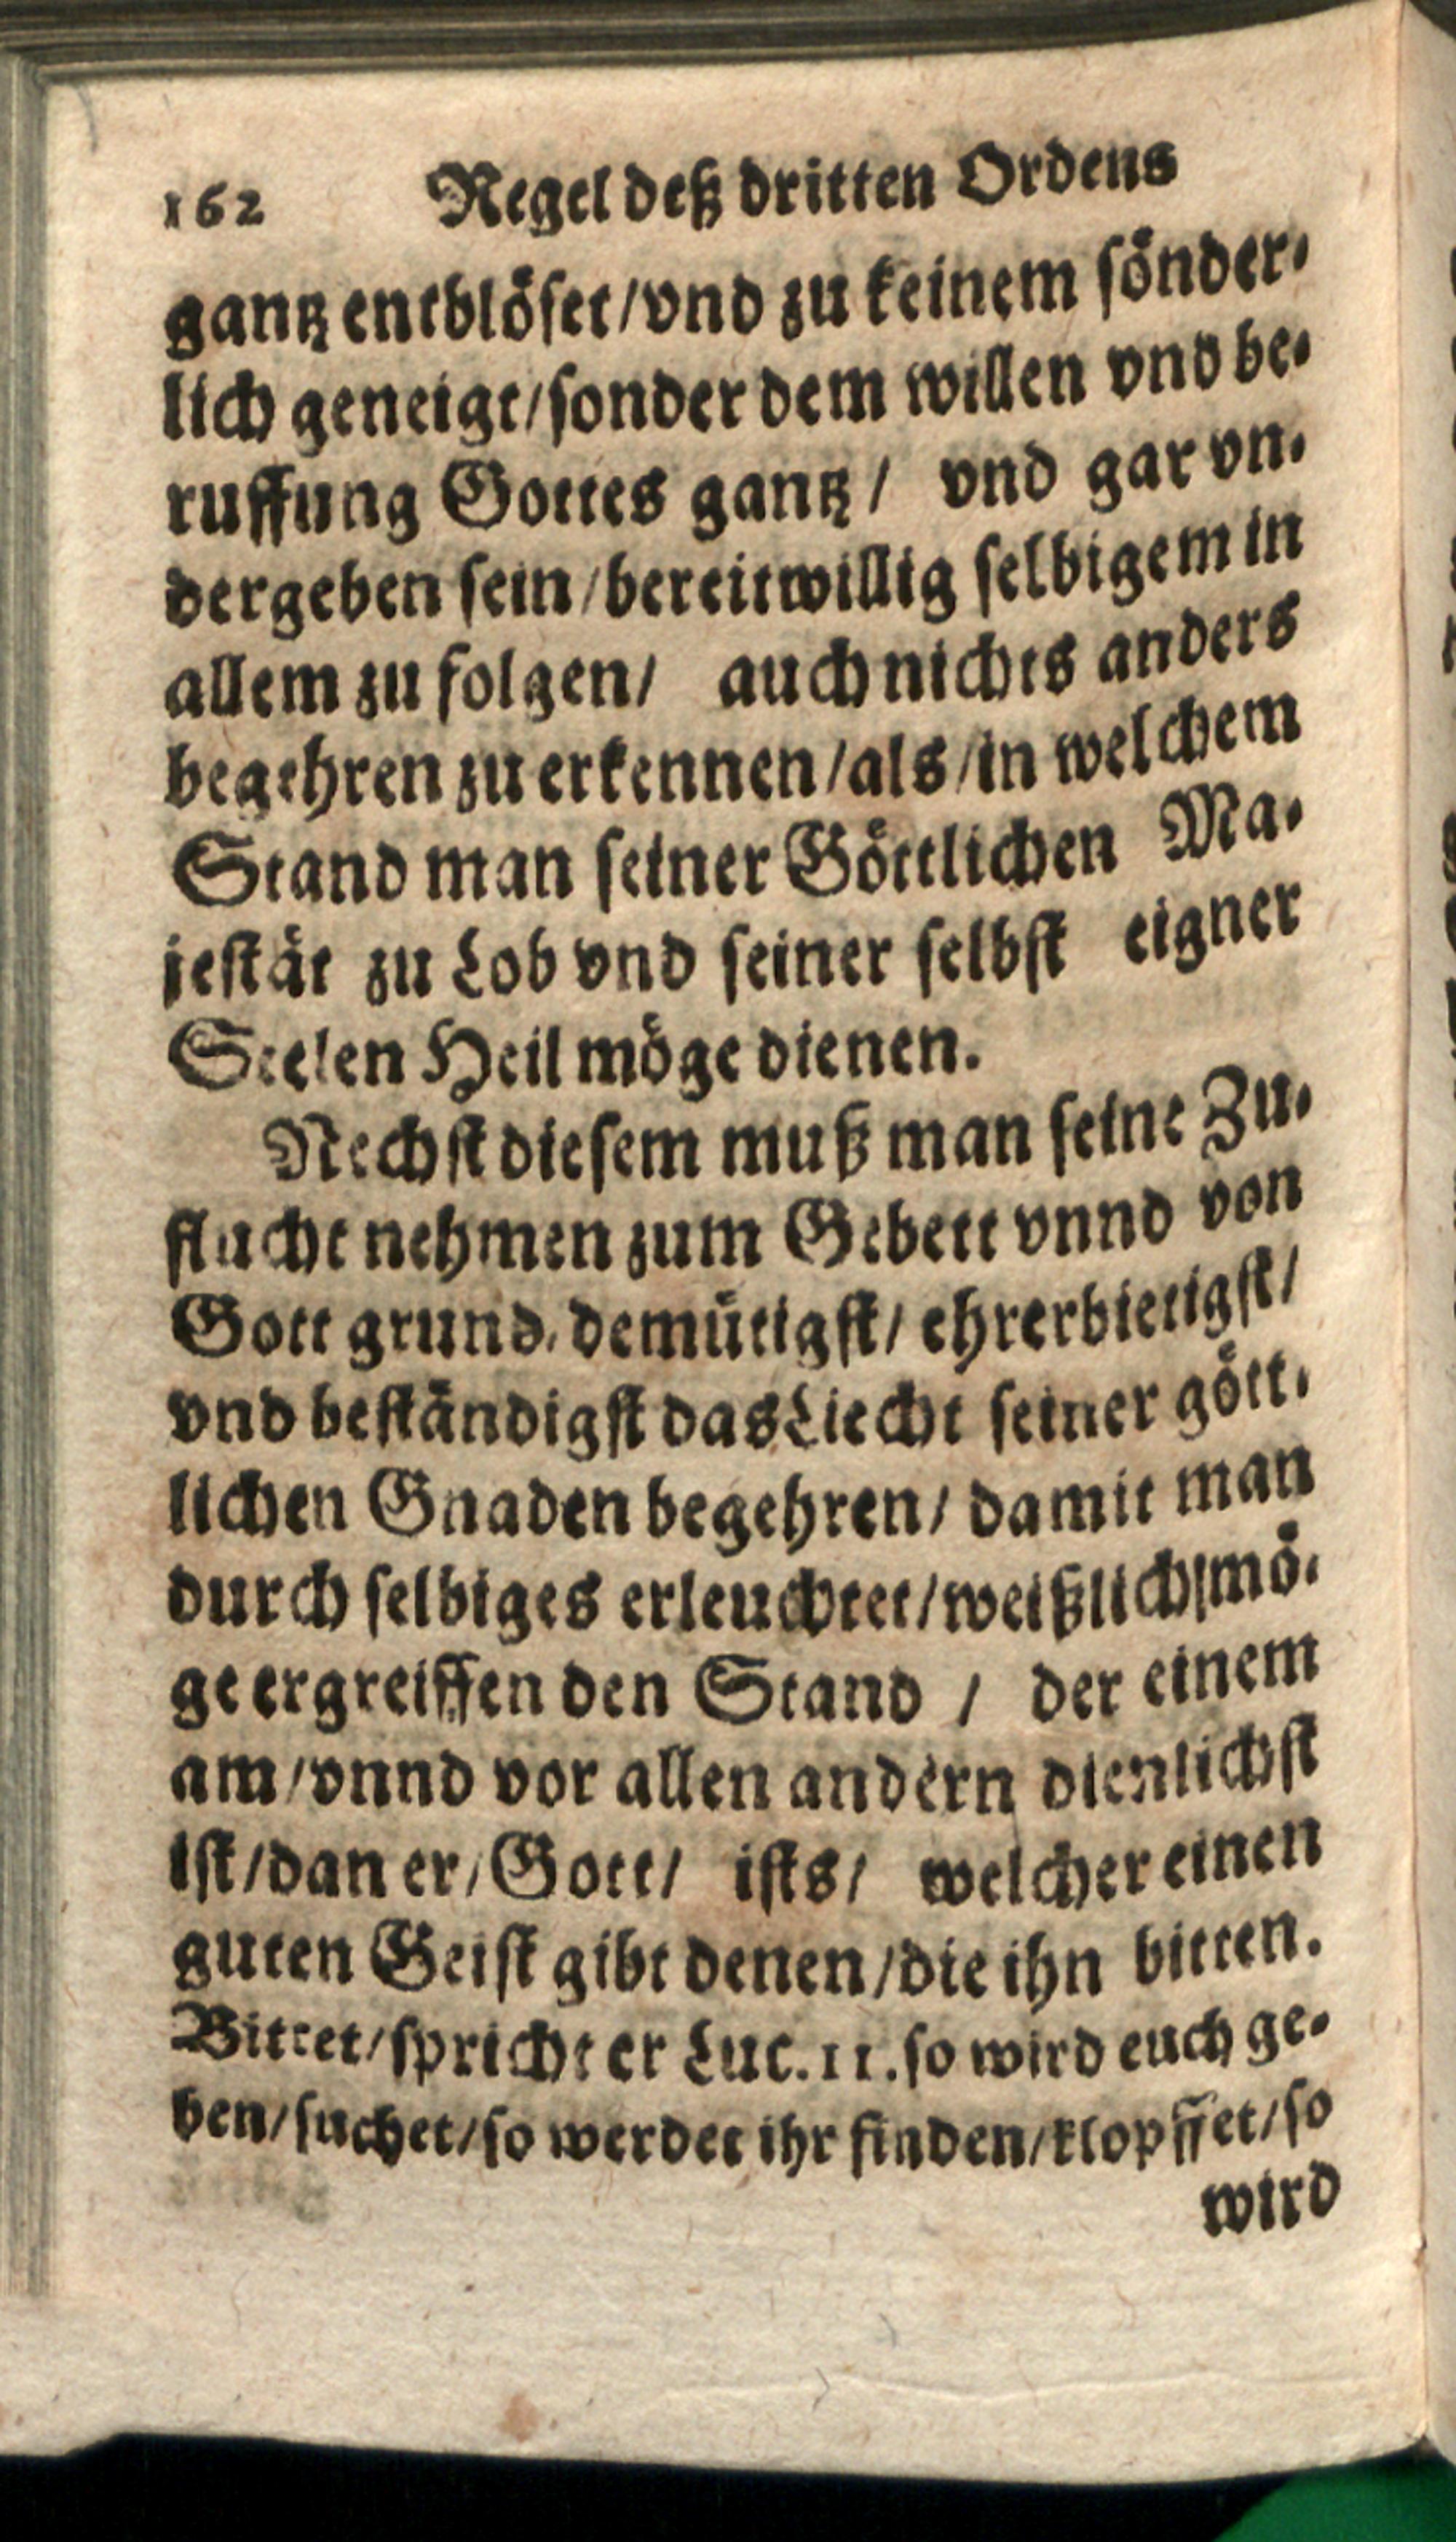 162 Regel deß dritten Ordens
gantz entblöset/vnd zu keinem sönder-
lich geneigt/sonder dem willen vnd be-
ruffung Gottes gantz/ vnd gar vn-
dergeben sein/bereitwillig selbigem in
allem zu folgen/ auch nichts anders
begehren zu erkennen/als/in welchem
Stand man seiner Göttlichen Ma-
jestät zu Lob vnd seiner selbst eigner
Seelen Heil möge dienen.
Nechst diesem muß man seine Zu-
flucht nehmen zum Gebett vnnd von
Gott grund-demütigst/ ehrerbietigst/
vnd beständigst das Liecht seiner gött-
lichen Gnaden begehren/ damit man
durch selbiges erleuchtet/weißlich/mö-
ge ergreiffen den Stand / der einem
am/vnnd vor allen andern dienlichst
ist/dan er/Gott/ ists/ welcher einen
guten Geist gibt denen/die ihn bitten.
Bittet/spricht er Luc.11.so wird euch ge-
ben/suchet/so werdet ihr finden/klopffet/so
wird